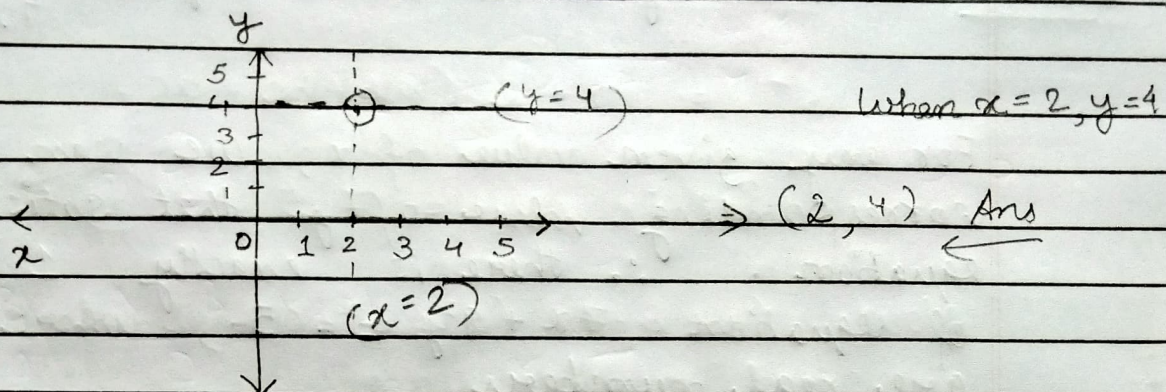 y
5
4 (y=4) When x=2, y=4
3
2
1 ⇒ (2, 4) Ans
x 0 1 2 3 4 5
(x=2)